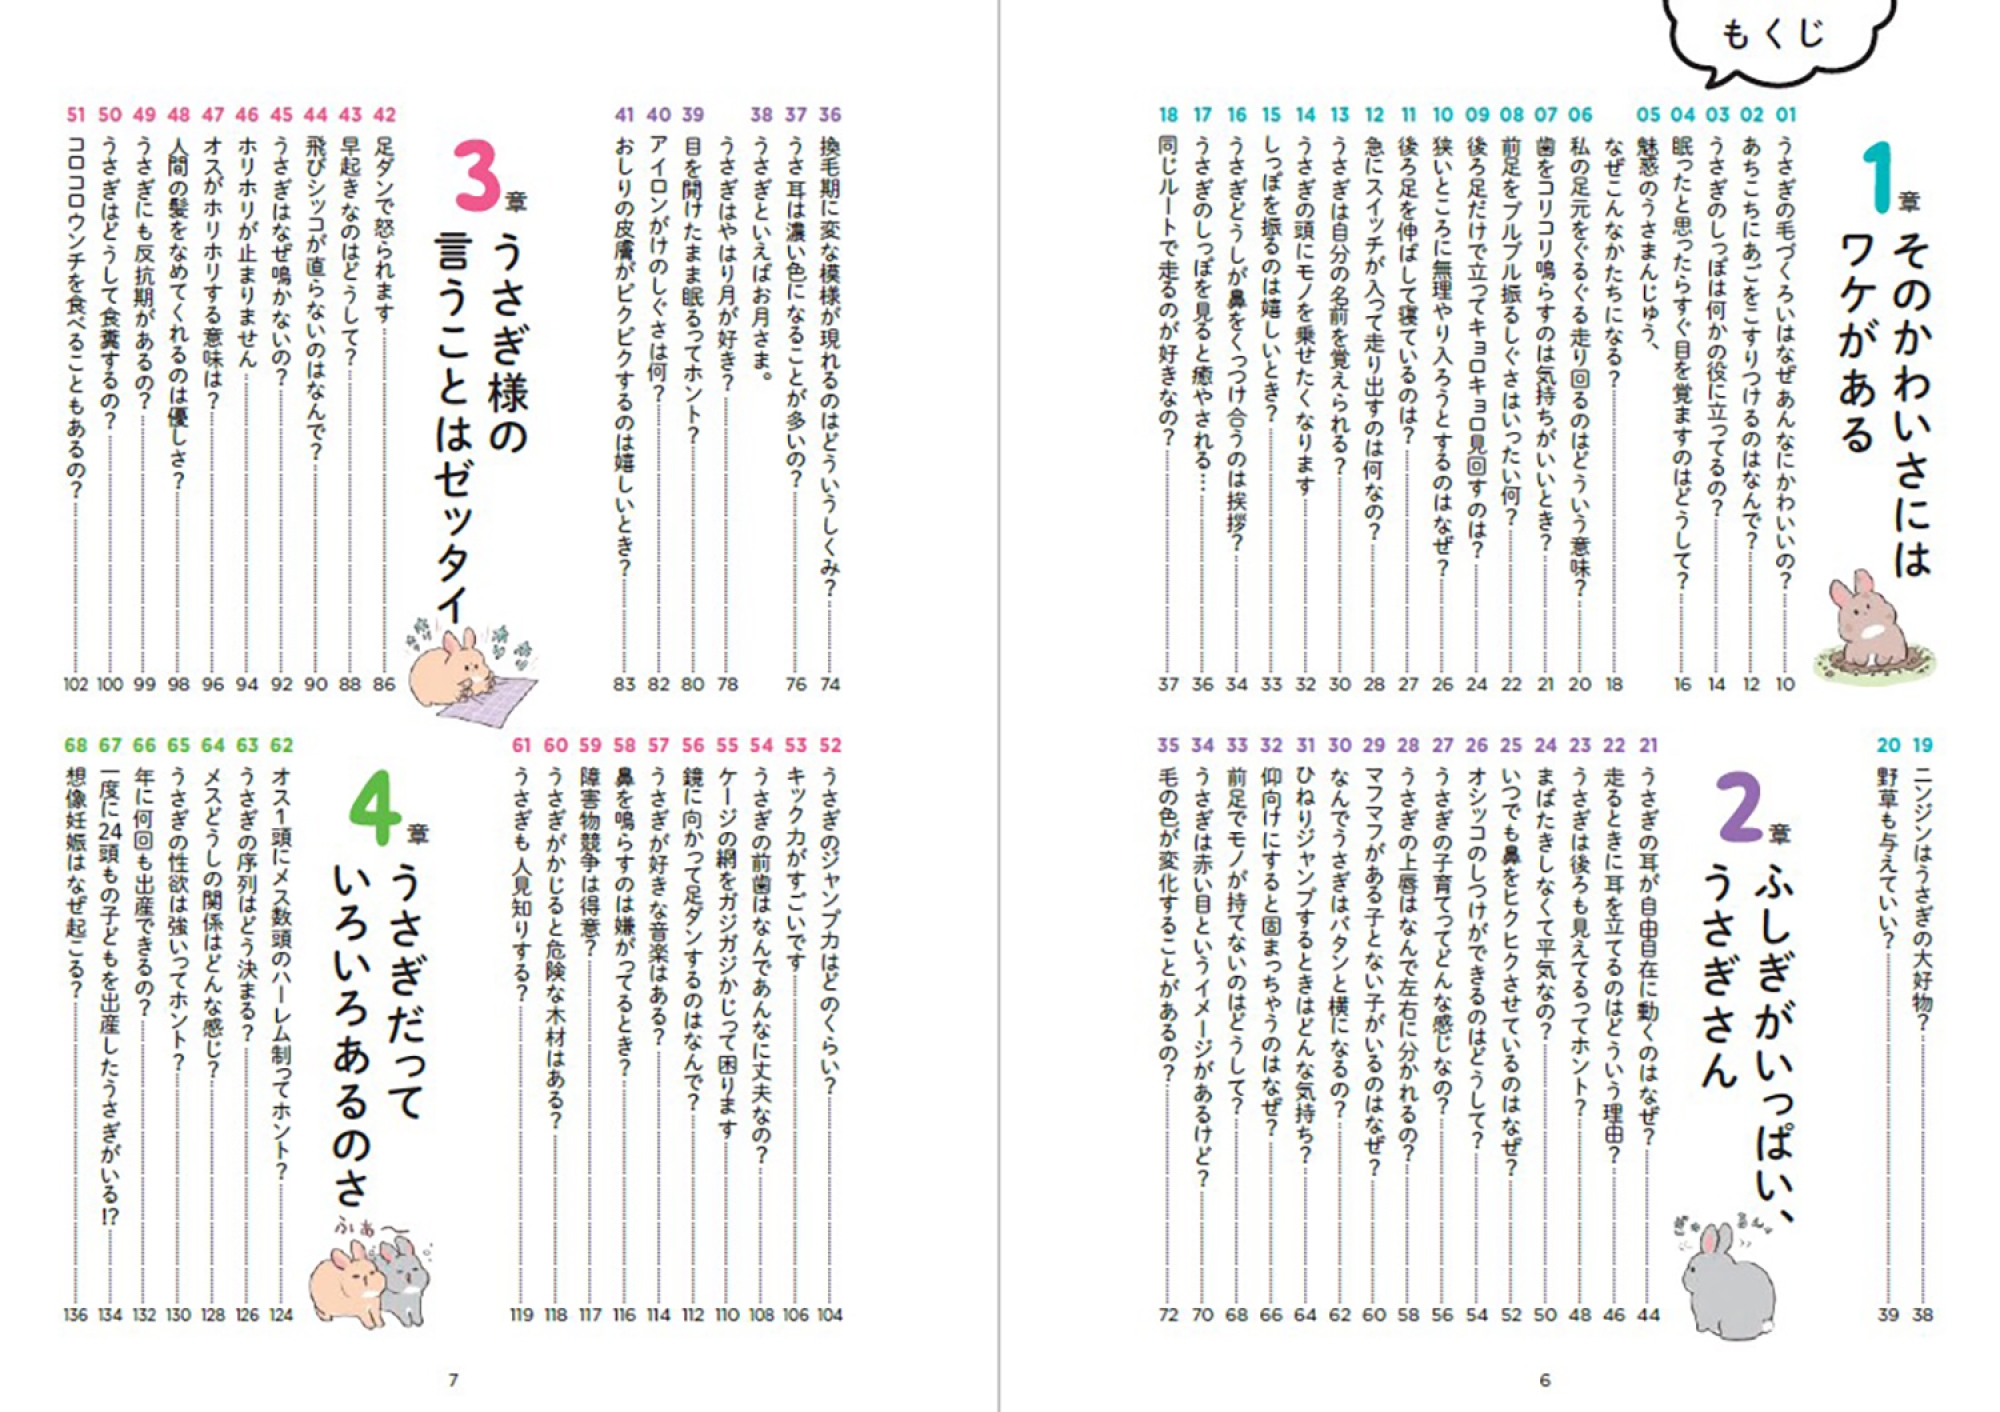 もくじ
1章
そのかわいさには
ワケがある
01 うさぎの毛づくろいはなぜあんなにかわいいの? 10
02 あちこちにあごをこすりつけるのはなんで? 12
03 うさぎのしっぽは何かの役に立ってるの? 14
04 眠ったと思ったらすぐ目を覚ますのはどうして? 16
05 魅惑のうさまんじゅう、
なぜこんなかたちになる? 18
06 私の足元をぐるぐる走り回るのはどういう意味? 20
07 歯をコリコリ鳴らすのは気持ちがいいとき? 21
08 前足をブルブル振るしぐさはいったい何? 22
09 後ろ足だけで立ってキョロキョロ見回すのは? 24
10 狭いところに無理やり入ろうとするのはなぜ? 26
11 後ろ足を伸ばして寝ているのは? 27
12 急にスイッチが入って走り出すのは何なの? 28
13 うさぎは自分の名前を覚えられる? 30
14 うさぎの頭にモノを乗せたくなります 32
15 しっぽを振るのは嬉しいとき? 33
16 うさぎどうしが鼻をくっつけ合うのは挨拶? 34
17 うさぎのしっぽを見ると癒やされる… 36
18 同じルートで走るのが好きなの? 37
19 ニンジンはうさぎの大好物? 38
20 野草も与えていい? 39
2章
ふしぎがいっぱい、
うさぎさん
21 うさぎの耳が自由自在に動くのはなぜ? 44
22 走るときに耳を立てるのはどういう理由? 46
23 うさぎは後ろも見えてるってホント? 48
24 まばたきしなくて平気なの? 50
25 いつでも鼻をヒクヒクさせているのはなぜ? 52
26 オシッコのしつけができるのはどうして? 54
27 うさぎの子育てってどんな感じなの? 56
28 うさぎの上唇はなんで左右に分かれるの? 58
29 マフマフがある子とない子がいるのはなぜ? 60
30 なんでうさぎはバタンと横になるの? 62
31 ひねりジャンプするときはどんな気持ち? 64
32 仰向けにすると固まっちゃうのはなぜ? 66
33 前足でモノが持てないのはどうして? 68
34 うさぎは赤い目というイメージがあるけど? 70
35 毛の色が変化することがあるの? 72
6
36 換毛期に変な模様が現れるのはどういうしくみ? 74
37 うさ耳は濃い色になることが多いの? 76
38 うさぎといえばお月さま。
うさぎはやはり月が好き? 78
39 目を開けたまま眠るってホント? 80
40 アイロンがけのしぐさは何? 82
41 おしりの皮膚がピクピクするのは嬉しいとき? 83
3章
うさぎ様の
言うことはゼッタイ
42 足ダンで怒られます 86
43 早起きなのはどうして? 88
44 飛びシッコが直らないのはなんで? 90
45 うさぎはなぜ鳴かないの? 92
46 ホリホリが止まりません 94
47 オスがホリホリする意味は? 96
48 人間の髪をなめてくれるのは優しさ? 98
49 うさぎにも反抗期があるの? 99
50 うさぎはどうして食糞するの? 100
51 コロコロウンチを食べることもあるの? 102
52 うさぎのジャンプ力はどのくらい? 104
53 キック力がすごいです 106
54 うさぎの前歯はなんであんなに丈夫なの? 108
55 ケージの網をガジガジかじって困ります 110
56 鏡に向かって足ダンするのはなんで? 112
57 うさぎが好きな音楽はある? 114
58 鼻を鳴らすのは嫌がってるとき? 116
59 障害物競争は得意? 117
60 うさぎがかじると危険な木材はある? 118
61 うさぎも人見知りする? 119
4章
うさぎだって
いろいろあるのさ
ふぁ〜
62 オス1頭にメス数頭のハーレム制ってホント? 124
63 うさぎの序列はどう決まる? 126
64 メスどうしの関係はどんな感じ? 128
65 うさぎの性欲は強いってホント? 130
66 年に何回も出産できるの? 132
67 一度に24頭もの子どもを出産したうさぎがいる!? 134
68 想像妊娠はなぜ起こる? 136
7